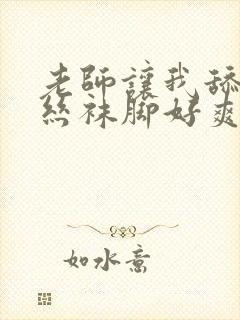 老師讓我舔
丝袜脚好爽
如水意